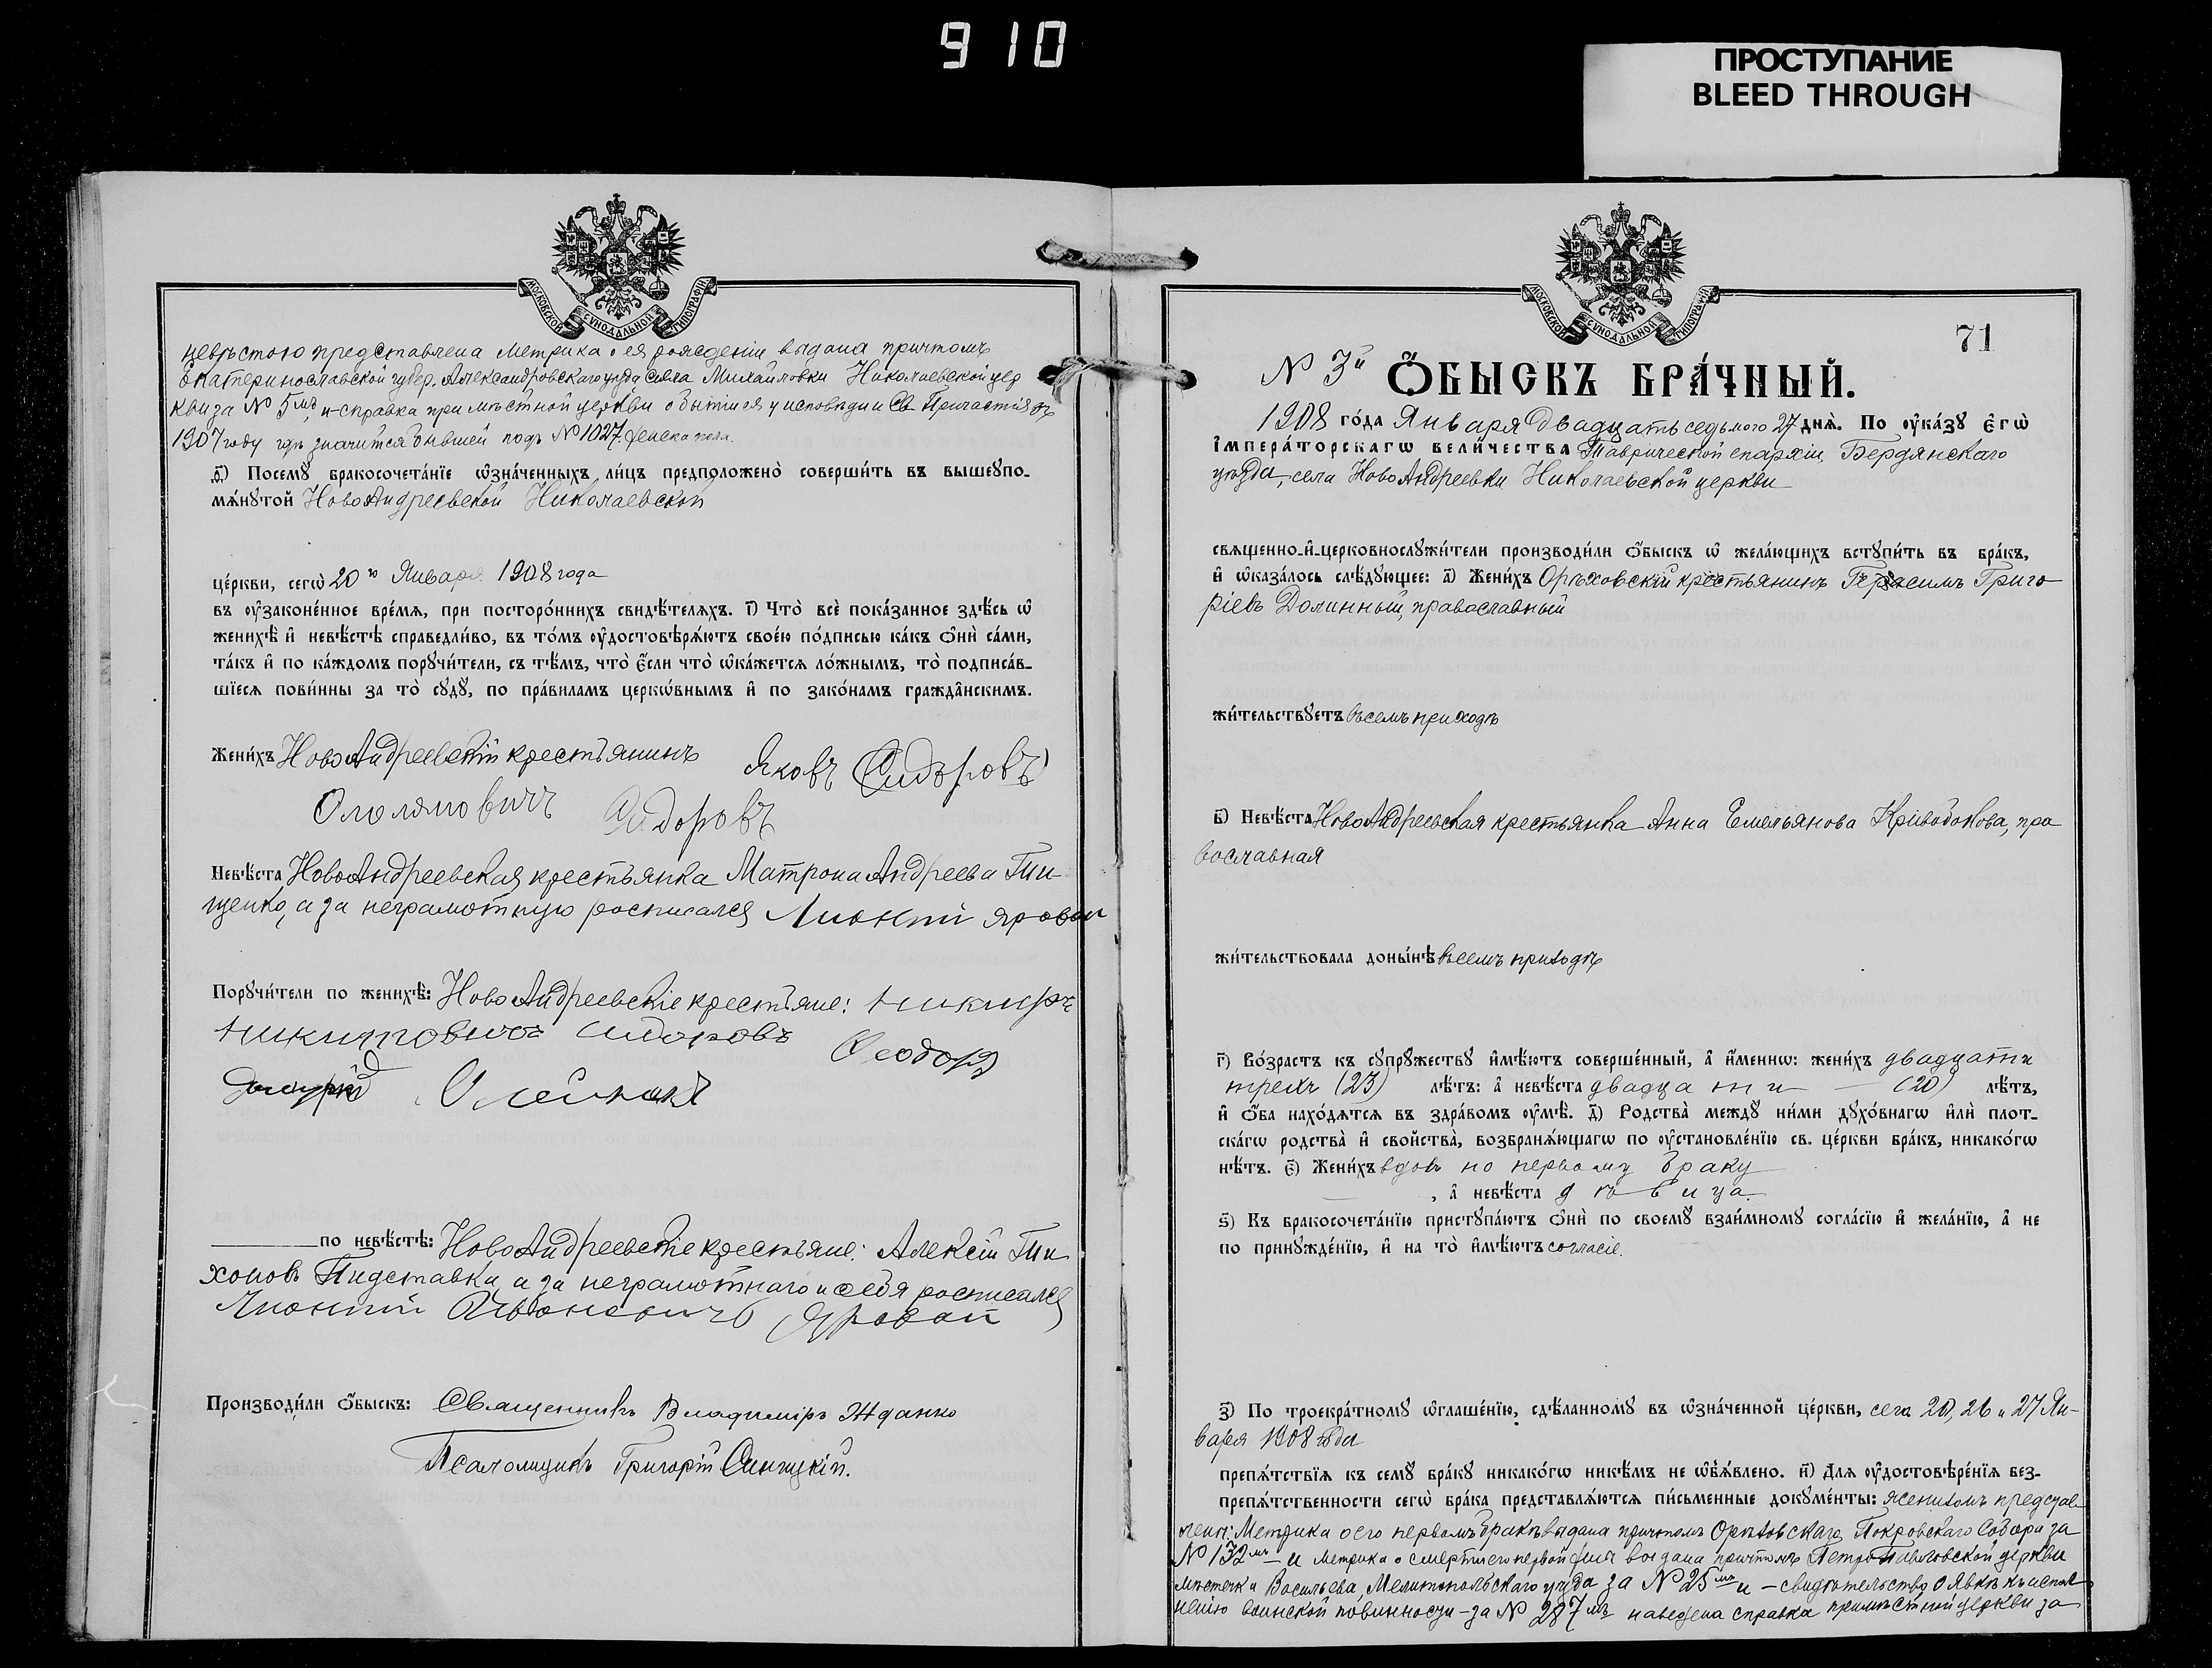 910
ПРОСТУПАНИЕ
BLEED THROUGH
МОСКОВСКОЙ СУНОДАЛЬНОЙ ТИПОГРАФІИ
невѣстою представлена метрика о ея рожденіи выдана причтомъ
Екатеринославской губер. Александровскаго уѣзда села Михайловки Николаевской цер
кви за № 5мъ и справка при мѣстной церкви о бытіи ея у исповѣди и Св. Причастія въ
1907 году гдѣ значится бывшей подъ № 1027. женска пола.
ѳ҃) Посемꙋ бракосочета́нїе ѡ҆зна́ченныхъ ли́цъ предположено̀ соверши́ть въ вышеꙋпо-
мѧ́нꙋтой НовоАндреевской Николаевской
це́ркви, сегѡ̀ 20го Января 1908 года
въ ᲂу҆законе́нное вре́мѧ, при посторо́ннихъ свидѣ́телѧхъ. і҃) Что̀ всѐ пока́занное здѣ́сь ѡ҆
женихѣ̀ и҆ невѣ́стѣ справедли́во, въ то́мъ ᲂу҆достовѣрѧ́ютъ свое́ю по́дписью ка́къ ѻ҆нѝ са́ми,
та́къ и҆ по ка́ждомъ порꙋчи́тели, съ тѣ́мъ, что̀ є҆́сли что̀ ѡ҆ка́жетсѧ ло́жнымъ, то̀ подписа́в-
шїесѧ пови́нны за то̀ сꙋдꙋ̀, по пра́виламъ церкѡ́внымъ и҆ по зако́намъ гражда́нскимъ.
Жени́хъ НовоАндреевскій крестьянинъ Яковъ Сидоровъ
Сидоровъ
Невѣ́ста НовоАндреевская крестьянка Матрона Андреева Ти-
щенко, а за неграмотную росписался Яровой
Порꙋчи́тели по женихѣ̀: НовоАндреевскіе крестьяне:
Сидоровъ Ѳеодоръ
Олейникъ
по невѣ́стѣ: НовоАндреевскіе крестьяне: Алексій Ти-
хоновъ Пидставка, а за неграмотнаго и себя росписался
Яровой
Производи́ли ѻ҆́быскъ: Священникъ Владиміръ Жданко
Псаломщикъ Григорій Синицкій.
МОСКОВСКОЙ СУНОДАЛЬНОЙ ТИПОГРАФІИ
71
№ 3й Ѻ҆́БЫСКЪ БРА́ЧНЫЙ.
1908 го́да Января двадцать седьмого 27 днѧ̀. По ᲂу҆ка́зꙋ є҆гѡ̀
і҆мпера́торскагѡ вели́чества Таврической епархіи, Бердянскаго
уѣзда, села НовоАндреевки Николаевской церкви
свѧщенно-и҆-церковнослꙋжи́тели производи́ли ѻ҆́быскъ ѡ҆ жела́ющихъ встꙋпи́ть въ бра́къ,
и҆ ѡ҆каза́лось слѣ́дꙋющее: а҃) Жени́хъ Орѣховскій крестьянинъ Герасимъ Григо
ріевъ Долинный, православный
жи́тельствꙋетъ въ семъ приходѣ
в҃) Невѣ́ста НовоАндреевская крестьянка Анна Емельянова Кривобокова, пра
вославная
жи́тельствовала доны́нѣ въ семъ приходѣ
г҃) Во́зрастъ къ сꙋпрꙋ́жествꙋ и҆мѣ́ютъ соверше́нный, а҆ и҆́менно: жени́хъ двадцати
трехъ (23) лѣ́тъ: а҆ невѣ́ста двадцати (20) лѣ́тъ,
и҆ ѻ҆́ба нахо́дѧтсѧ въ здра́вомъ ᲂу҆мѣ̀. д҃) Родства̀ междꙋ̀ ни́ми дꙋхо́внагѡ и҆лѝ плот-
ска́гѡ родства̀ и҆ свойства̀, возбранѧ́ющагѡ по ᲂу҆становле́нїю св. це́ркви бра́къ, никако́гѡ
нѣ́тъ. є҃) Жени́хъ вдовъ по первому браку
, а҆ невѣ́ста дѣвица.
ѕ҃) Къ бракосочета́нїю пристꙋпа́ютъ ѻ҆нѝ по своемꙋ̀ взаи́мномꙋ согла́сїю и҆ жела́нїю, а҆ не
по принꙋжде́нїю, и҆ на то̀ и҆мѣ́ютъ согласіе.
з҃) По троекра́тномꙋ ѡ҆глаше́нїю, сдѣ́ланномꙋ въ ѡ҆зна́ченной це́ркви, сего 20, 26 и 27 Ян-
варя 1908 года
препѧ́тствїѧ къ семꙋ̀ бра́кꙋ никако́гѡ никѣ́мъ не ѡ҆б̾ѧ́влено. и҃) Длѧ ᲂу҆достовѣре́нїѧ без-
препѧ́тственности сегѡ̀ бра́ка представлѧ́ютсѧ пи́сьменные докꙋме́нты: женихомъ представ-
лены: Метрика о его первомъ бракѣ выдана причтомъ Орѣховскаго Покровскаго Собора за
№ 132мъ и метрика о смерти его первой жены выдана причтомъ Петро Павловской церкви
мѣстечка Васильева, Мелитопольскаго уѣзда за № 25мъ и – свидѣтельство о явкѣ къ испол
ненію воинской повинности – за № 287мъ наведена справка при мѣстной церкви за